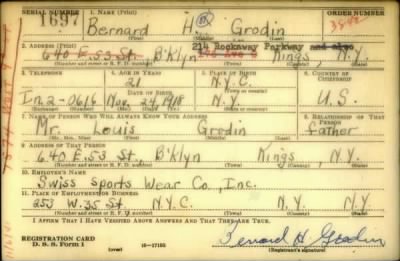 SERIAL NUMBER 1. NAME (Print) ORDER NUMBER
1697 Bernard H. Grodin
(First) (Middle) (Last)
2. ADDRESS (Print) 214 Rockaway Parkway
640 E.53 St. B'klyn Kings, N.Y.
(Number and street or R. F. D. number) (Town) (County) (State)
3. TELEPHONE 4. AGE IN YEARS 5. PLACE OF BIRTH 6. COUNTRY OF CITIZENSHIP
21 N.Y.C.
In.2-0616 Nov. 24, 1918 N.Y. U.S.
7. NAME OF PERSON WHO WILL ALWAYS KNOW YOUR ADDRESS 8. RELATIONSHIP OF THAT PERSON
Mr. Louis Grodin father
(Mr., Mrs., Miss) (First) (Middle) (Last)
9. ADDRESS OF THAT PERSON
640 E.53 St., B'klyn Kings, N.Y.
(Number and street or R. F. D. number) (Town) (County) (State)
10. EMPLOYER'S NAME
Swiss Sports Wear Co., Inc.
11. PLACE OF EMPLOYMENT OR BUSINESS
253 W. 35 St. N.Y.C. N.Y. N.Y.
(Number and street or R. F. D. number) (Town) (County) (State)
I AFFIRM THAT I HAVE VERIFIED ABOVE ANSWERS AND THAT THEY ARE TRUE.
REGISTRATION CARD
D. S. S. Form 1 (over) 16-17105 Bernard H. Grodin